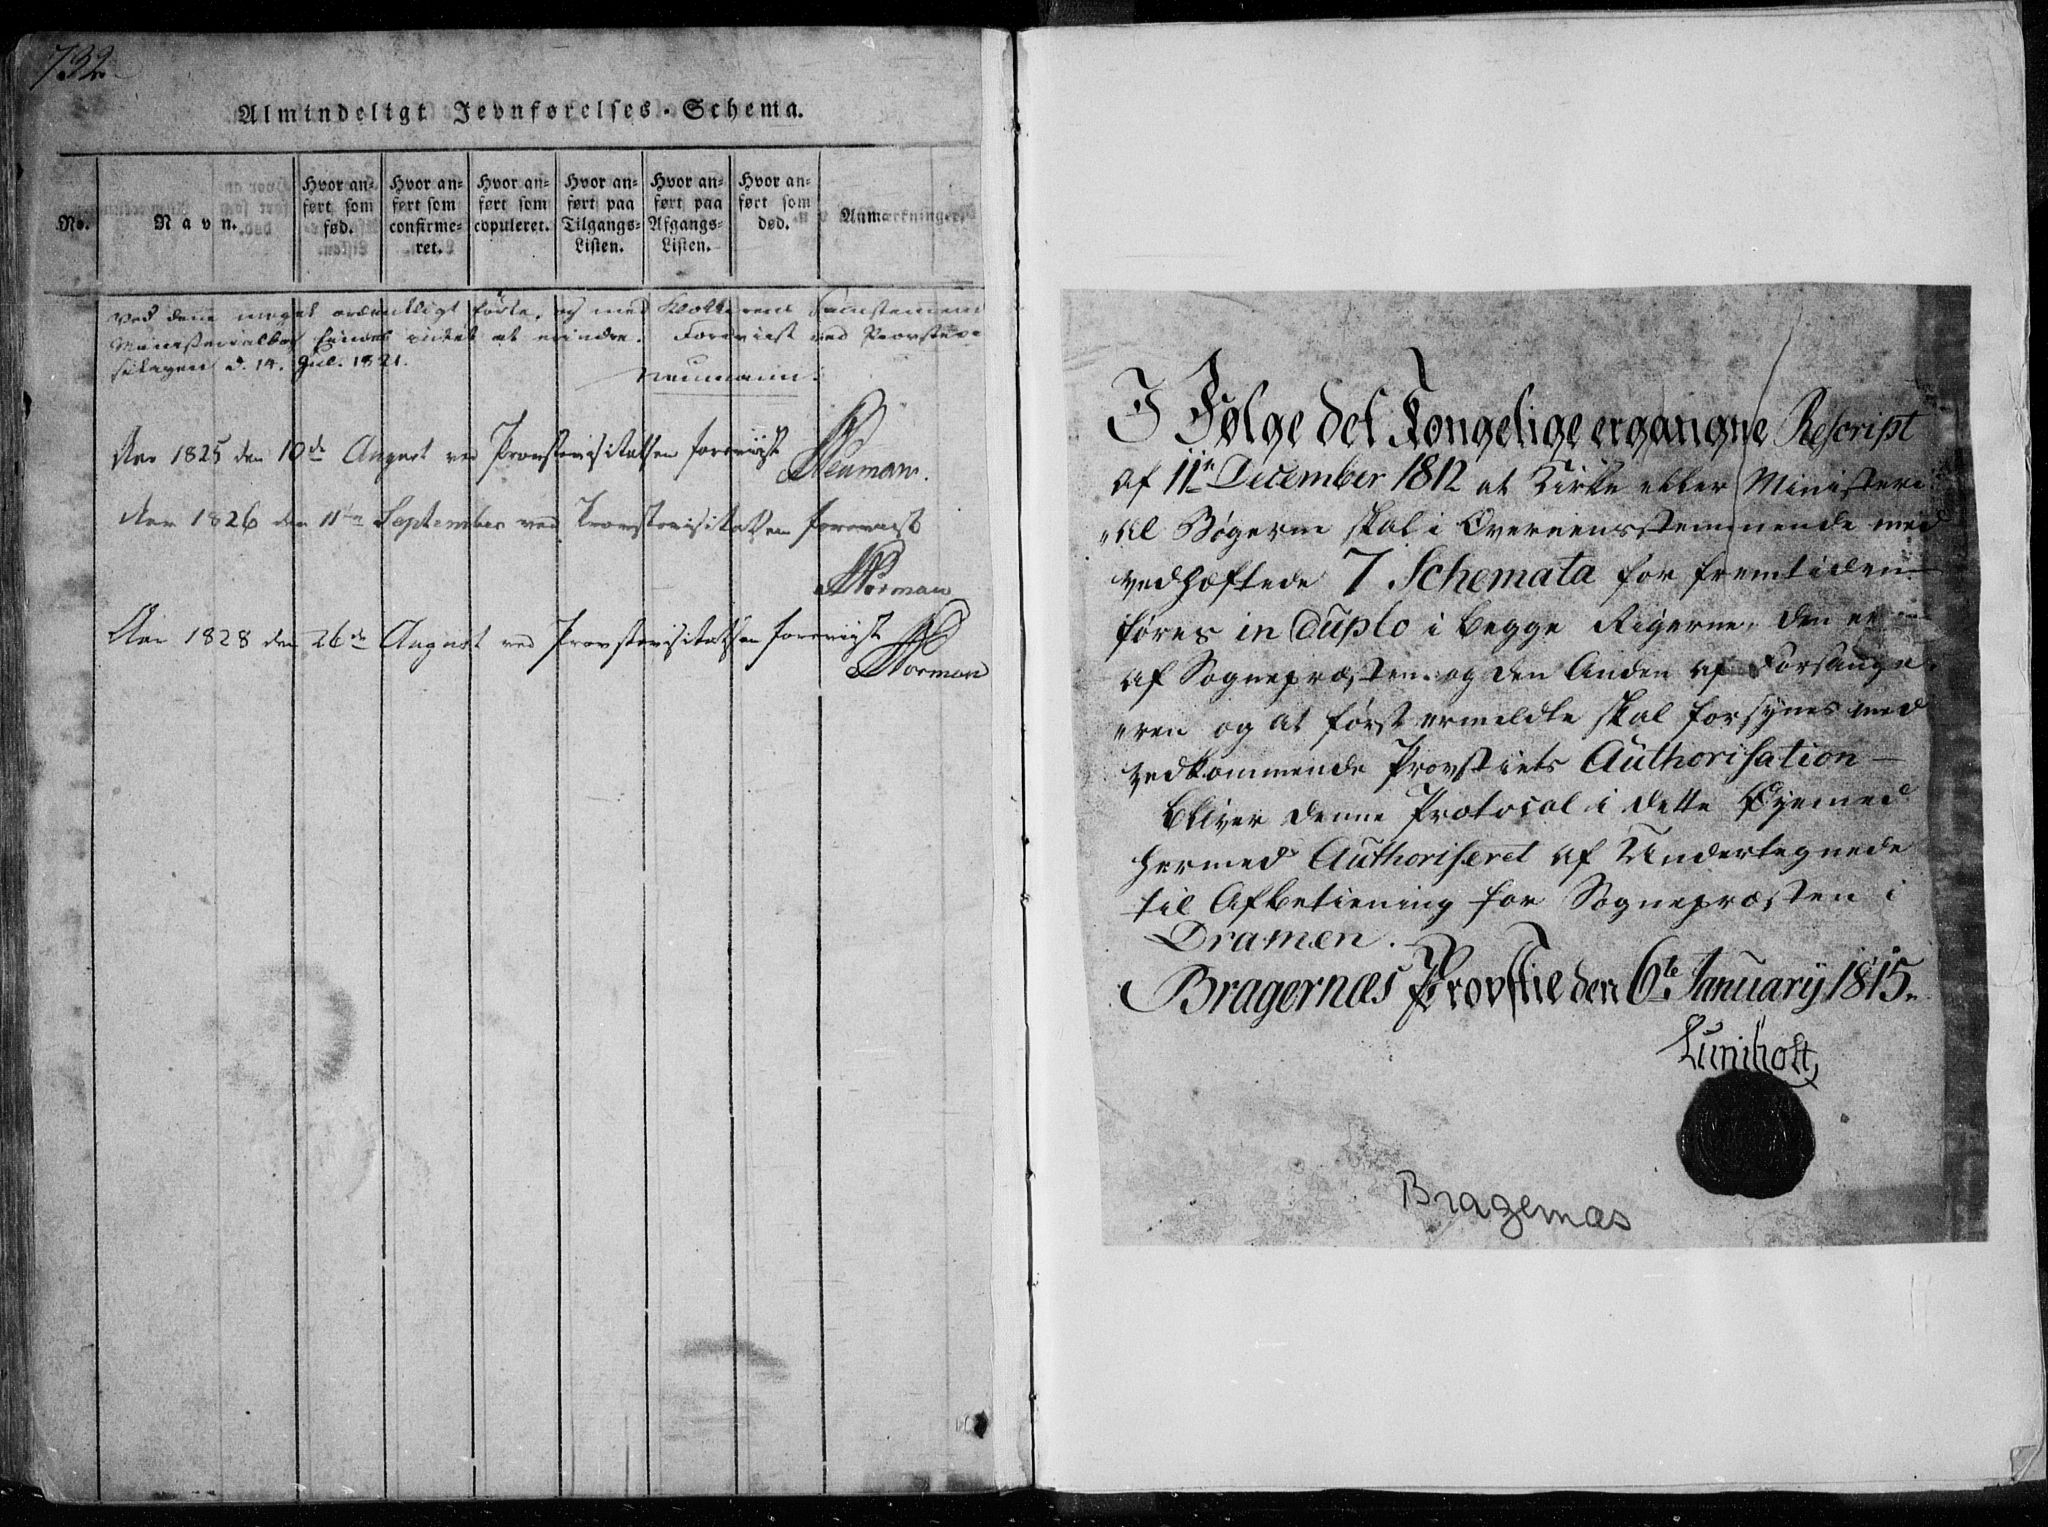 732
Almindeligt Jevnførelses-Schema.
No.
Navn.
Hvor an-
ført som
fød.
Hvor an-
ført som
confirme-
ret.
Hvor an-
ført som
copuleret.
Hvor an-
ført paa
Tilgangs-
Listen.
Hvor an-
ført paa
Afgangs-
Listen.
Hvor an-
ført som
død.
Anmærkninger.
Ved denne meget ordentligt førte, og med Klokkerens
Ministerialbog findes intet at erindre. Foreviist ved Provstevi-
sitazen d. 14. Jul. 1821.
Neumann.
Aar 1825 den 10de August ved Provstevisitatsen foreviist
Neuman.
Aar 1826 den 11te September ved Provstevisitatsen foreviist
Norman
Aar 1828 den 26de August ved Provstevisitatsen foreviist
Norman
I Følge det Kongelige ergangne Rescript
af 11te December 1812 at Kirke eller Ministeri-
"al Bøgerne skal i Overeensstemmende med
vedhæftede 7 Schemata for fremtiden
føres in Duplo i begge Rigerne, den ene
af Sognepræsten og den Anden af Forsange-
"ren og at først ermeldte skal forsynes med
vedkommende Provstiets Authorisation —
bliver denne Protocol i dette Øyemed
hermed Authoriseret af Undertegnede
til Afbetiening for Sognepræsten i
Dramen.
Bragernæs Provstie den 6te January 1815.
Bragernæs